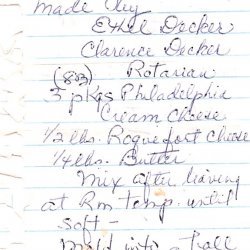 Made by
Ethel Decker
Clarence Decker
(83) Rotarian
3 pkgs Philadelphia
Cream Cheese
1/2 lbs. Roquefort Cheese
1/4 lbs. Butter
Mix after leaving
at Rm. temp. until
soft -
Mold into a ball